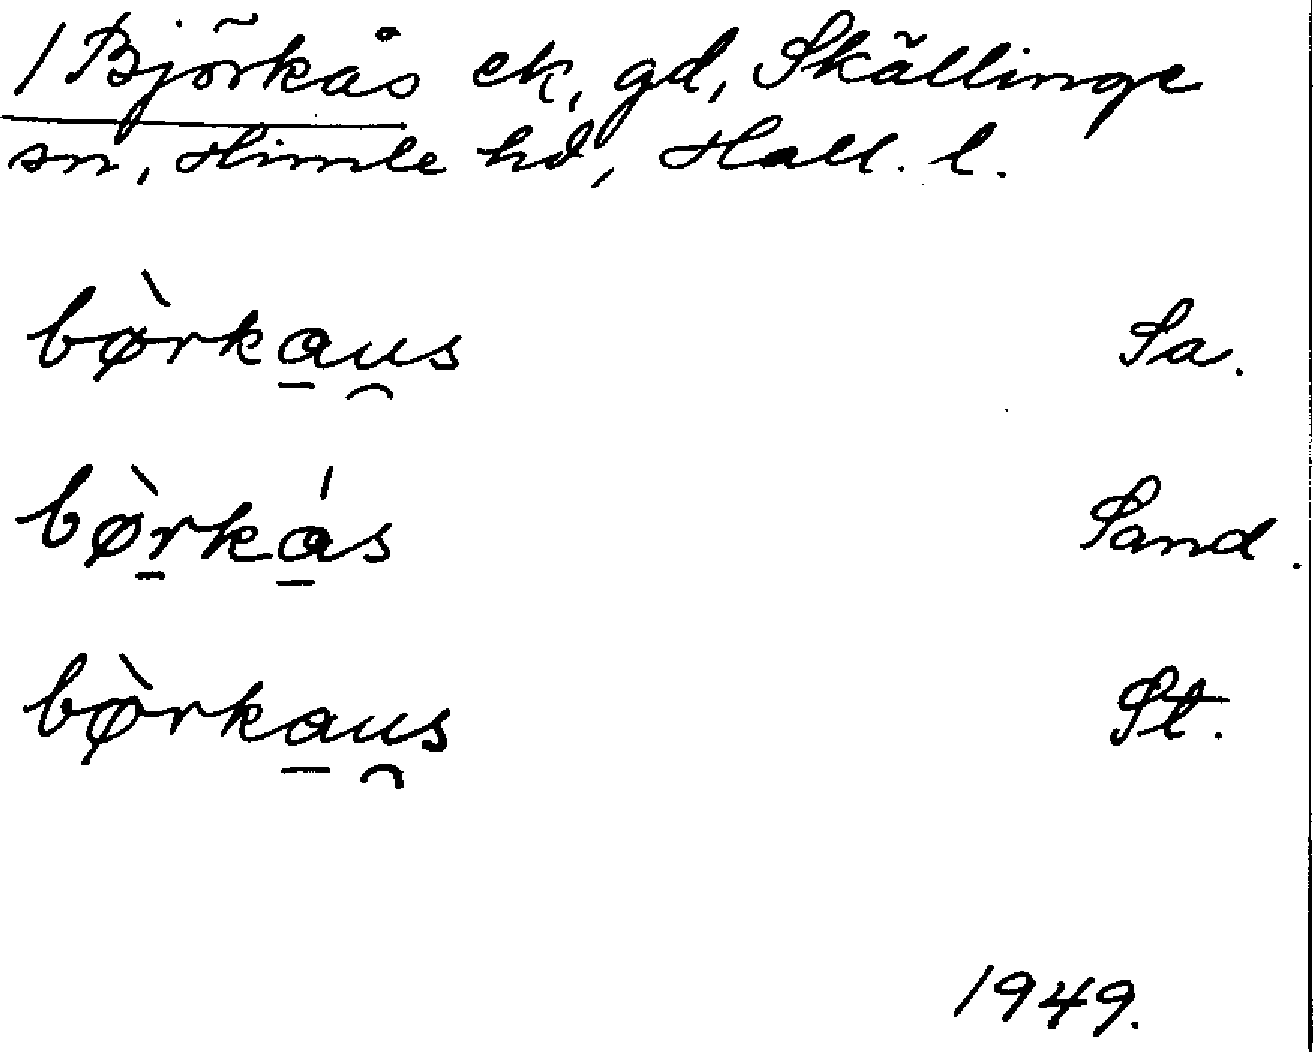 / Björkås ek, gd, Skällinge
sn, Himle hd, Hall. l.
bø̀rka̱u̯s Sa.
bø̀ṟká̱s Sand.
bø̀rka̱u̯s St.
1949.